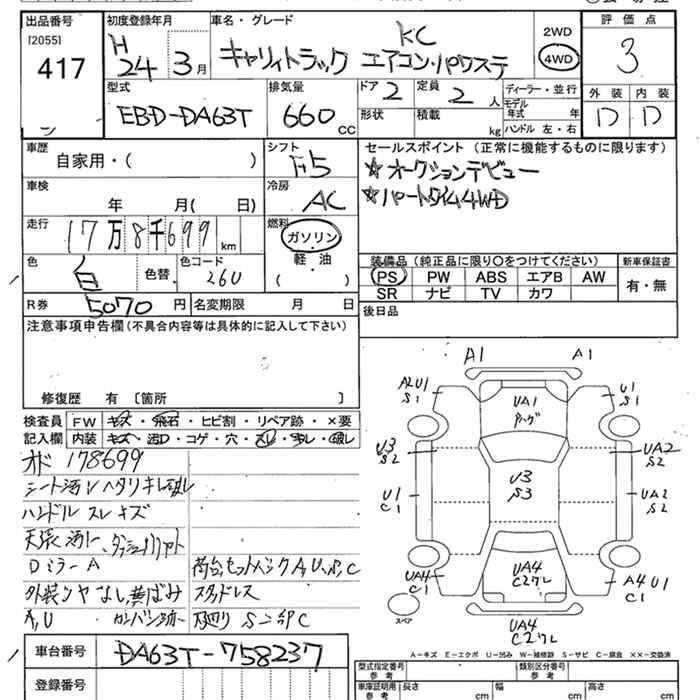 出品番号 [2055] 417
初度登録年月 H 24 3月
車名・グレード キャリイトラック KC エアコン・パワステ
2WD
4WD
評価点 3
型式 EBD-DA63T
排気量 660 CC
ドア 2
定員 2 人
形状
積載 kg
ディーラー・並行
モデル年式 年
ハンドル 左・右
外装 D
内装 D
車歴 自家用・( )
シフト F5
セールスポイント (正常に機能するものに限ります)
☆オークションデビュー
☆パートタイム4WD
車検 年 月( 日)
冷房 AC
走行 17万8千699 km
燃料 ガソリン・軽・油 ( )
色 白 色替
色コード 26U
装備品 (純正品に限り〇をつけてください)
新車保証書
PS PW ABS エアB AW
有・無
SR ナビ TV カワ
R券 5070 円
名変期限 月 日
後日品
注意事項申告欄 (不具合内容等は具体的に記入して下さい)
修復歴 有 〔箇所 〕
検査員記入欄
FW キズ・飛石・ヒビ割・リペア跡・×要
内装 キズ・汚れ・コゲ・穴・スレ・キレ・破レ
オド 178699
シート汚レ ヘタリ キレ破レ
ハンドル スレ キズ
天張汚レ、
DミラーA
荷台セットバックA,U,S,C
外装ツヤなし黄ばみ
スタッドレス
A,U
下廻りS二部C
車台番号 DA63T-758237
登録番号
A1 A1
A2U1 S1
U1 S1
UA1
U3 S2
UA2 S2
U3 S3
U1 C1
UA2 S2
UA4 C1
A4U1 C1
UA4
スペア
UA4
A-キズ E-エクボ U-凹み W-補修跡 S-サビ C-腐食 XX-交換済
型式指定番号 参考
類別区分番号 参考
車庫証明用 参考
長さ cm
幅 cm
高さ cm